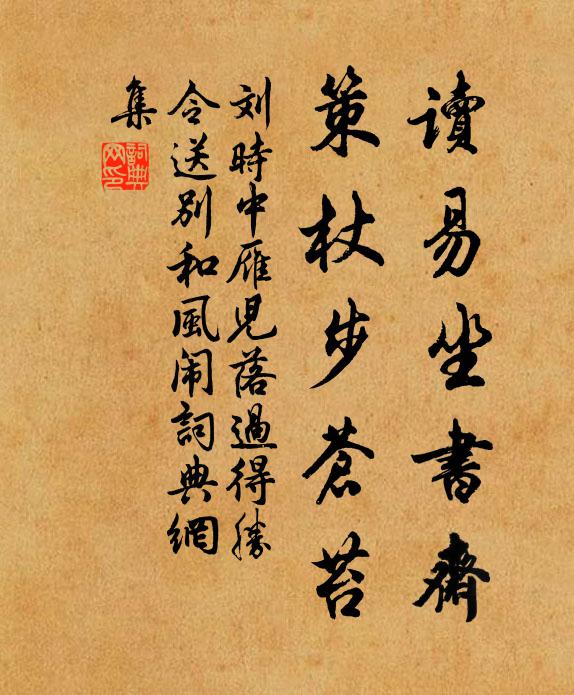 讀易坐書齋
策杖步蒼苔
刘時中雁児落過得勝
令送别和風闹詞典網
集
詞典網印